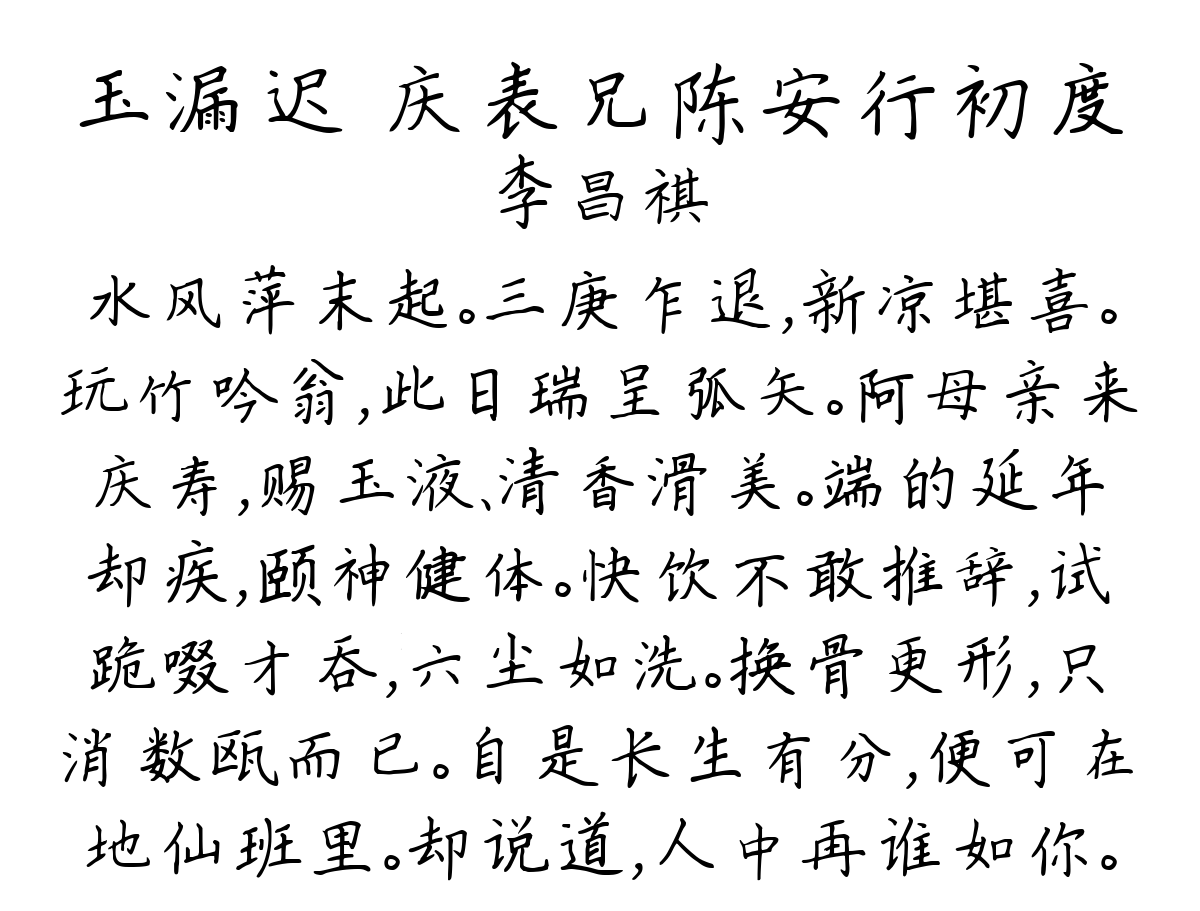 玉漏迟 庆表兄陈安行初度
李昌祺
水风萍末起。三庚乍退,新凉堪喜。
玩竹吟翁,此日瑞呈弧矢。阿母亲来
庆寿,赐玉液、清香滑美。端的延年
却疾,颐神健体。快饮不敢推辞,试
跪啜才吞,六尘如洗。换骨更形,只
消数瓯而已。自是长生有分,便可在
地仙班里。却说道,人中再谁如你。